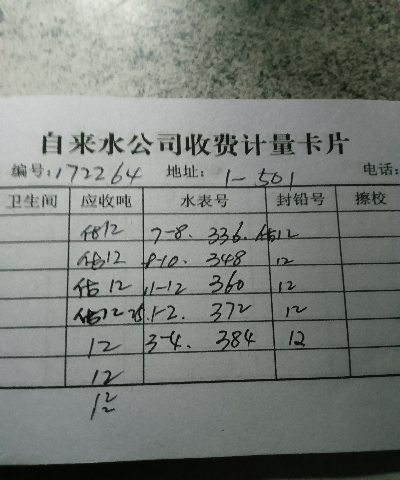 自来水公司收费计量卡片
编号:172264 地址: 1-501 电话:
卫生间 应收吨 水表号 封铅号 擦校
估12 7-8. 336. 估12
估12 8-10. 348 12
估12 11-12 360 12
估12 25.1-2. 372 12
12 3-4. 384 12
12
12